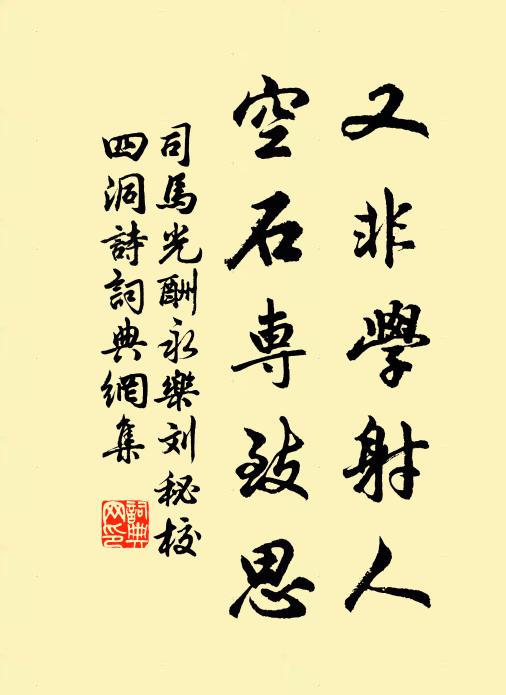 又非學射人
空石專致思
司馬光酬永樂刘秘校
四洞詩詞典網集
詞典
网印